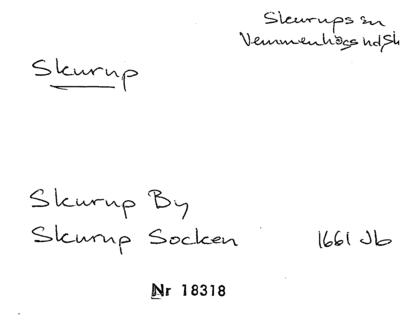 Skurups sn
Vemmenhögs hd, Sk
Skurup
Skurup By
Skurup Socken 1661 Jb
Nr 18318